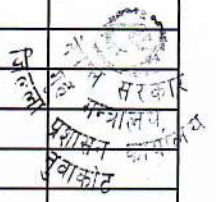 सरकार
मन्त्रालय
जिल्ला प्रशासन कार्यालय
नुवाकोट